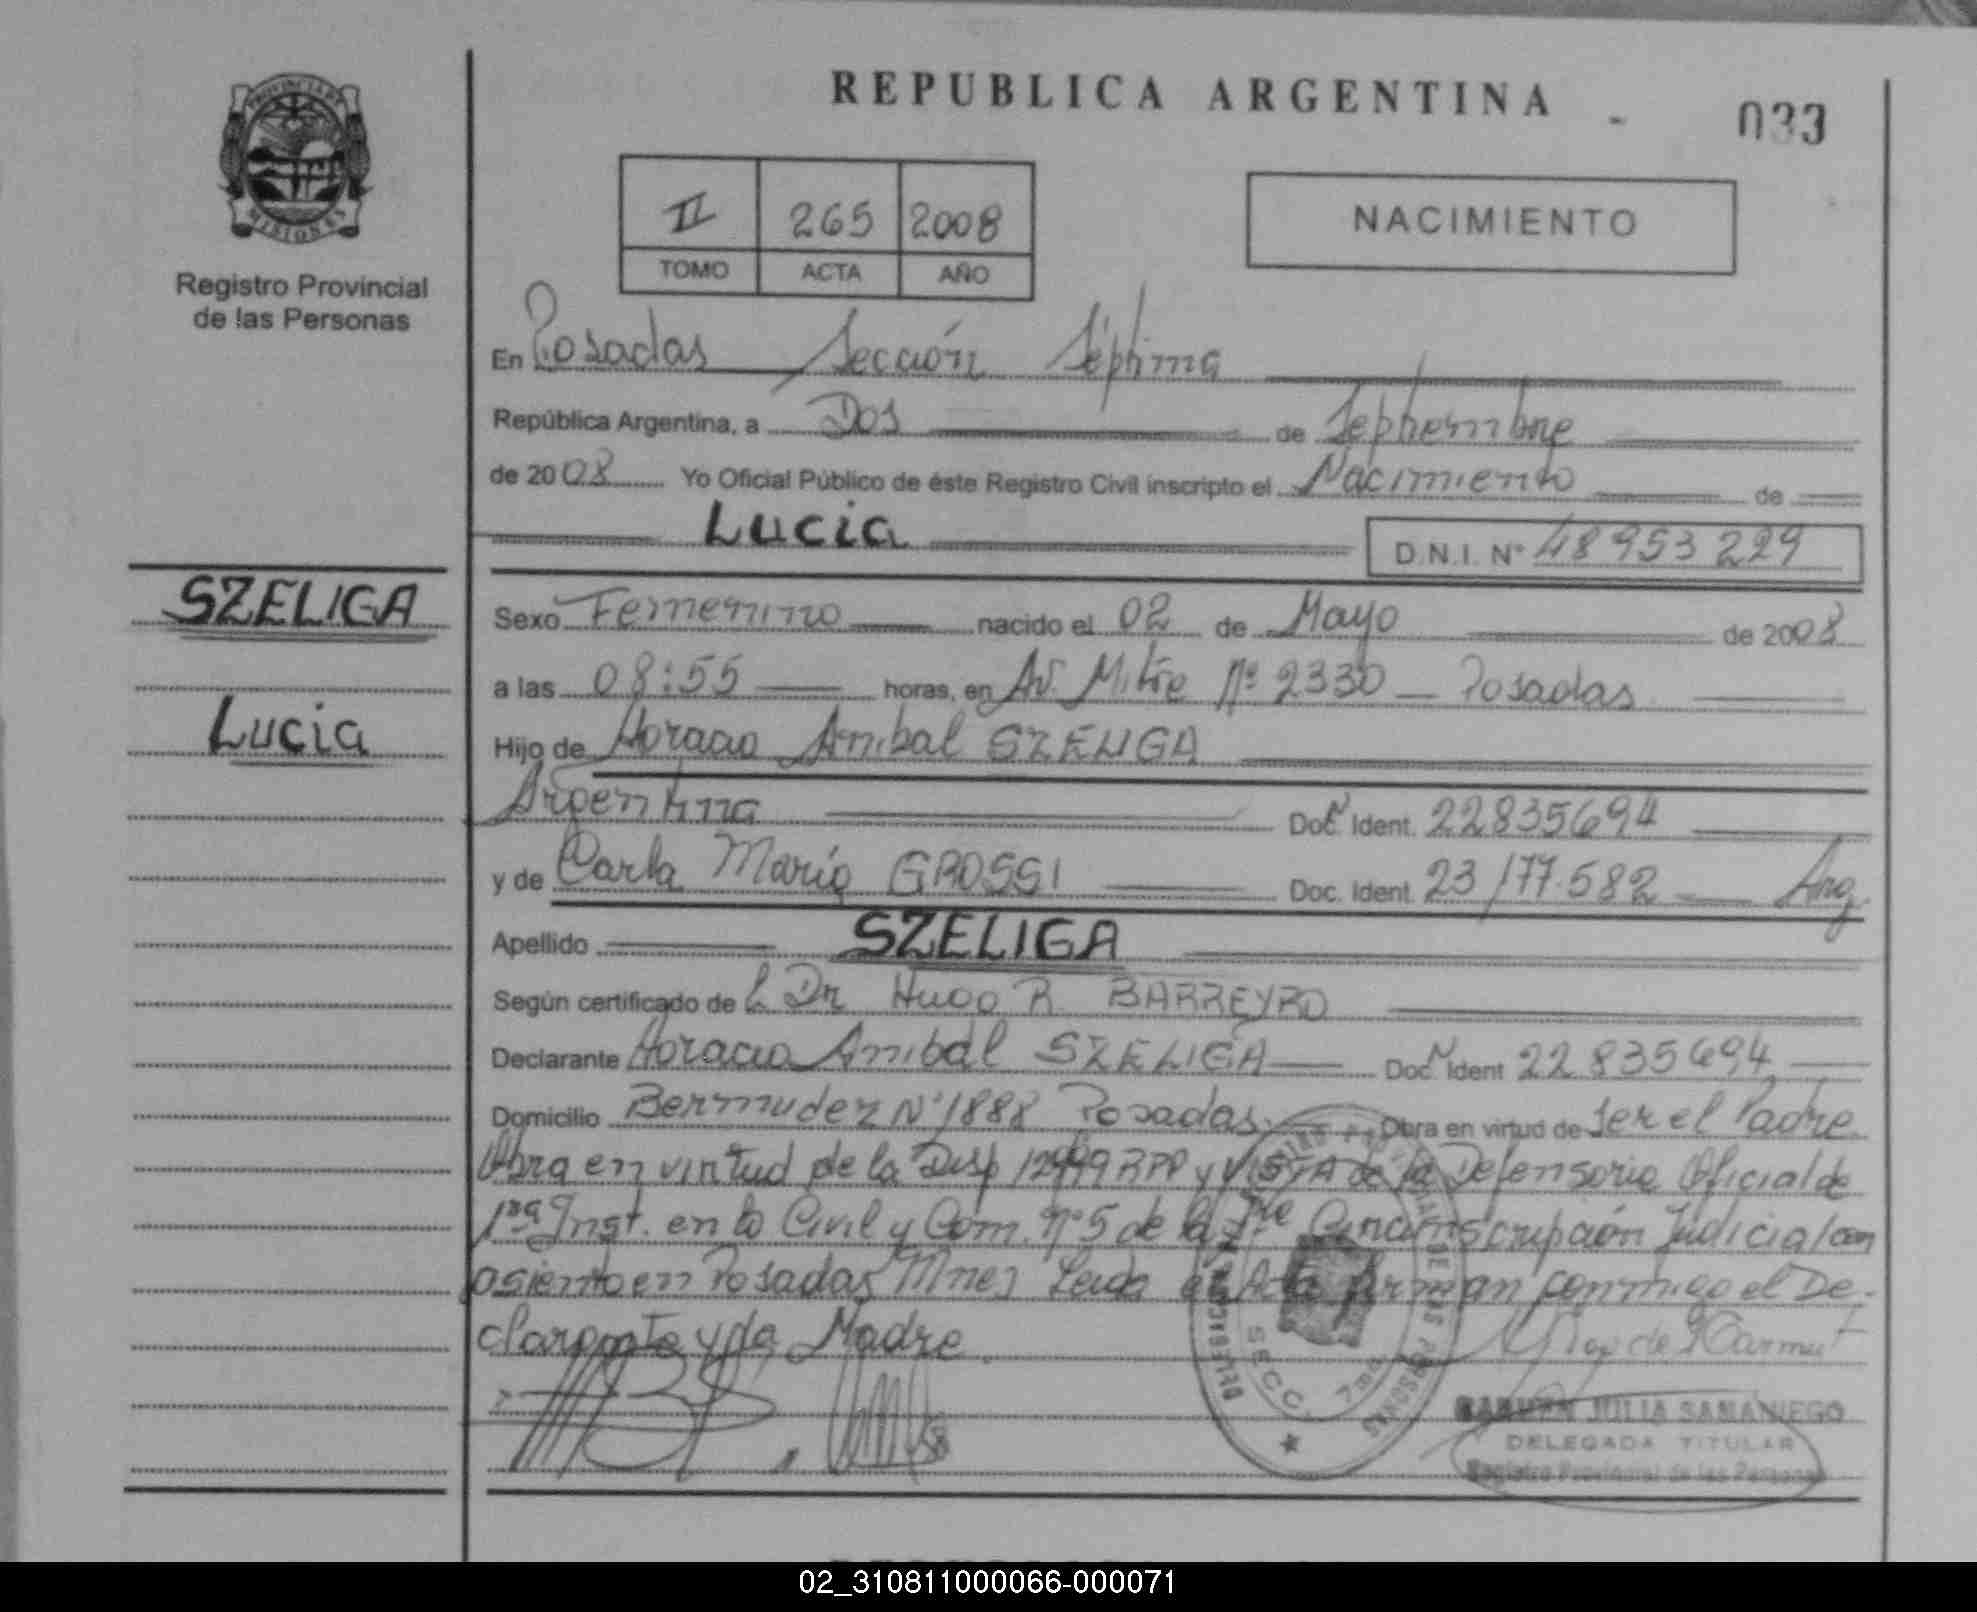 REPUBLICA ARGENTINA
033
PROVINCIA DE
MISIONES
Registro Provincial
de las Personas
II 265 2008
TOMO ACTA AÑO
NACIMIENTO
En Posadas Sección Séptima
República Argentina, a Dos de Septiembre
de 2008 Yo Oficial Público de éste Registro Civil inscripto el Nacimiento de
Lucia D.N.I. N° 48953229
SZELIGA
Lucia
Sexo Femenino nacido el 02 de Mayo de 2008
a las 08:55 horas, en Av. Mitre Nº 2330 - Posadas
Hijo de Horacio Anibal SZELIGA
Argentina Doc. Ident. 22835694
y de Carla María GROSSI Doc. Ident. 23177.582 Arg.
Apellido SZELIGA
Según certificado de L Dr Hugo R BARREYRO
Declarante Horacio Anibal SZELIGA Doc. Ident 22835694
Domicilio Bermudez N°1888 Posadas. Obra en virtud de Ser el Padre.
Obra en virtud de la Disp RPP y VISTA de la Defensoria Oficial de
1ra Inst. en lo Civil y Com. Nº5 de la 1re Circunscripción Judicial con
asiento en Posadas Mnes Leida el Acta firman conmigo el De-
clarante y la Madre.
DELEGACION
SECC. 7ma
JULIA SAMANIEGO
DELEGADA TITULAR
Registro Provincial de las Personas
02_310811000066-000071